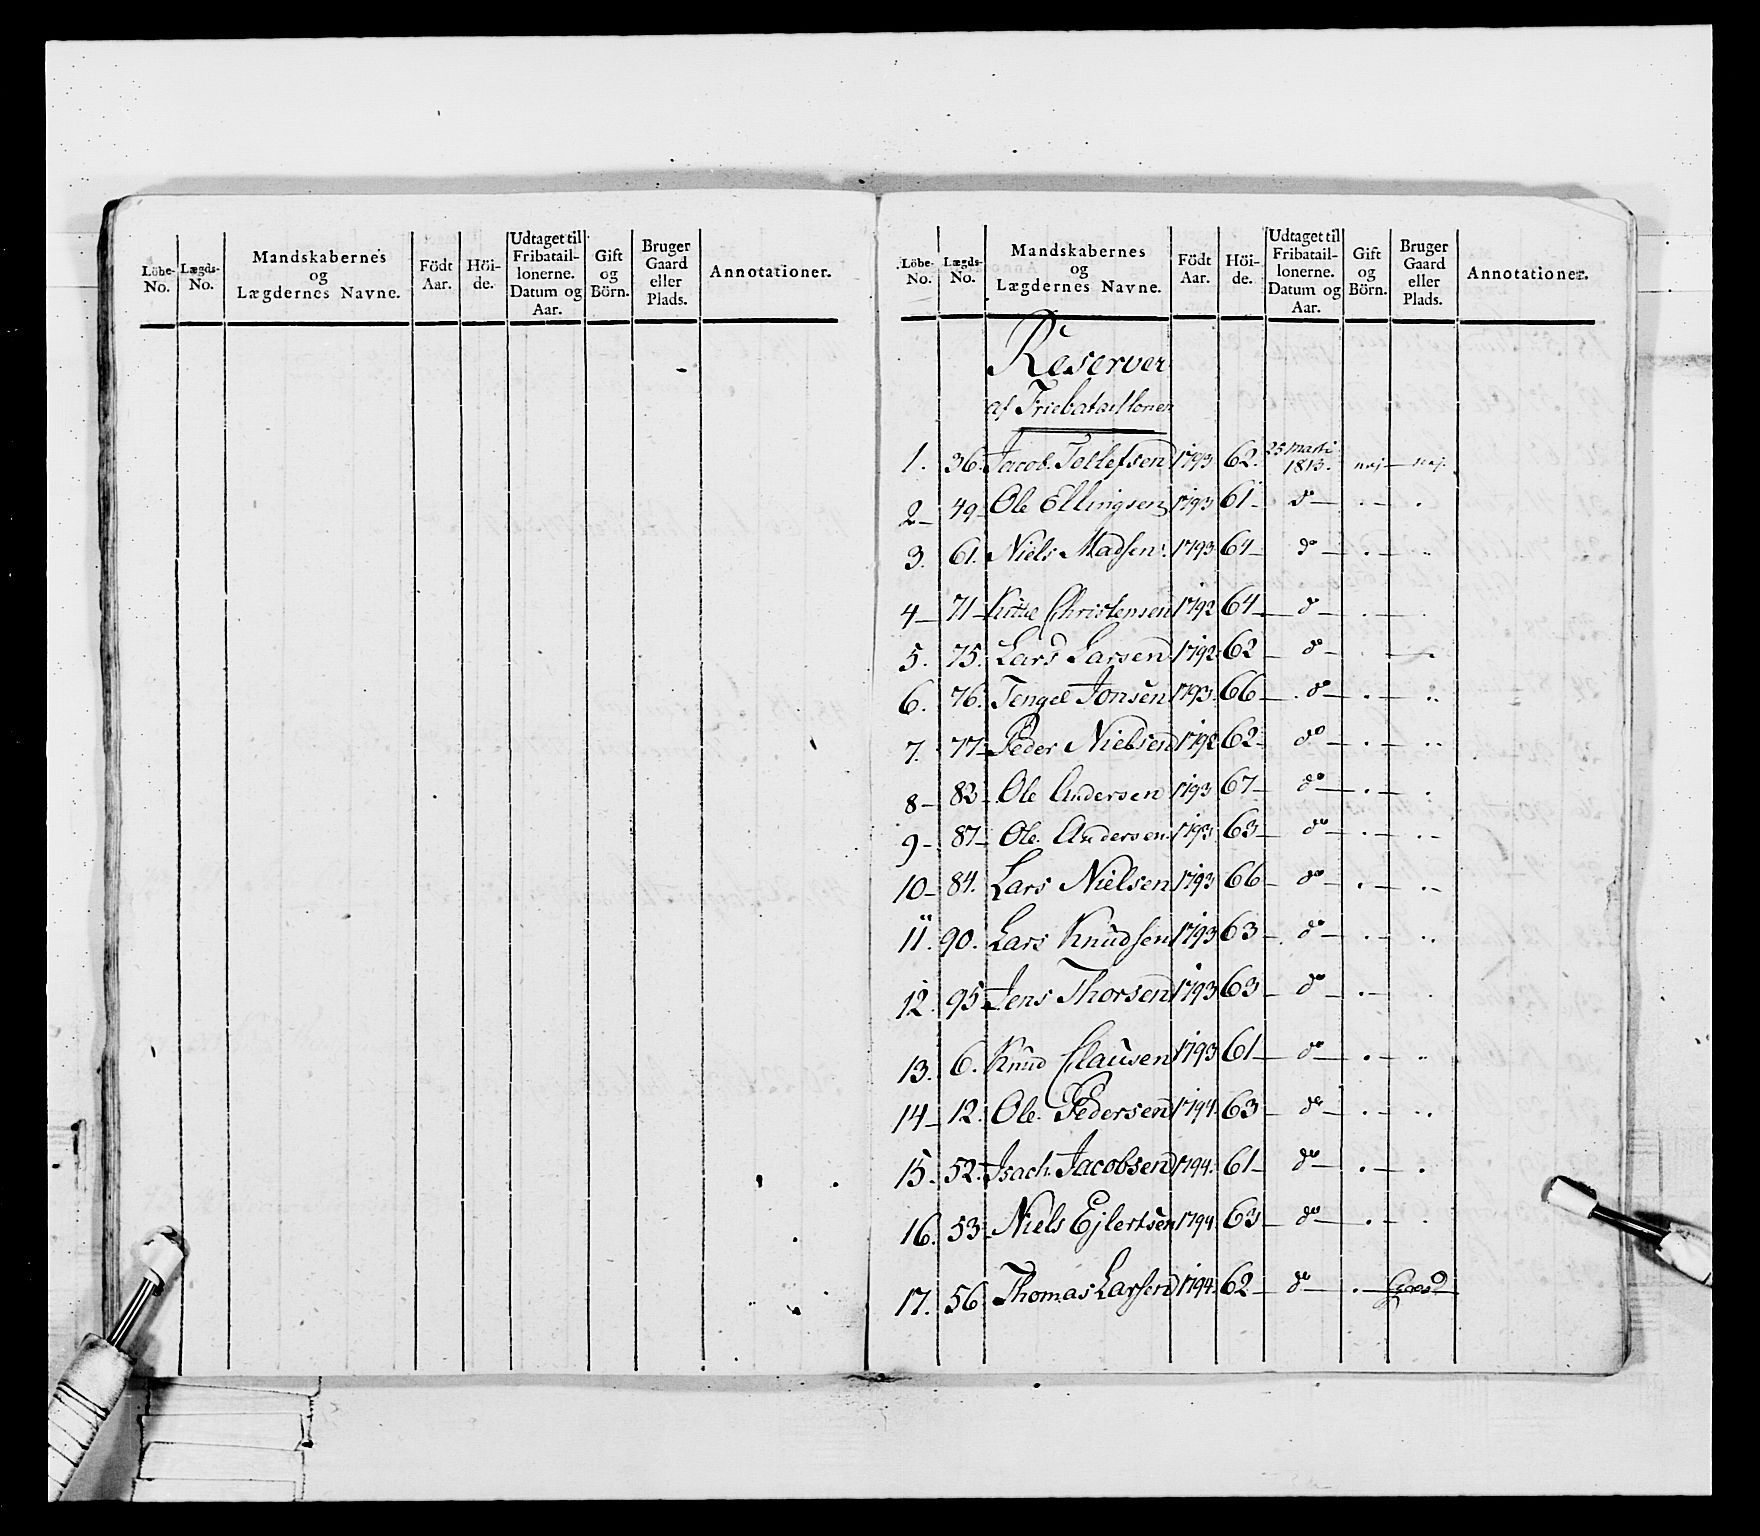 Löbe-No. Lægds-No. Mandskabernes og Lægdernes Navne. Födt Aar. Höi-de. Udtaget til Fribatail-lonerne. Datum og Aar. Gift og Börn. Bruger Gaard eller Plads. Annotationer.
Löbe-No. Lægds-No. Mandskabernes og Lægdernes Navne. Födt Aar. Höi-de. Udtaget til Fribatail-lonerne. Datum og Aar. Gift og Börn. Bruger Gaard eller Plads. Annotationer.
Reserver
af Friebataillonen
1. 36. Jacob Tollefsen 1793 62. 25 Marti 1813. nej — nej.
2 – 49 – Ole Ellingsen 1793 61 – do — . — .
3. 61. Niels Madsen. 1793 64 – do — . — ..
4 – 71 – Kittel Christensen 1792 64 – do — . — .
5. 75. Lars Larsen 1792 62 – do — . — ..
6. 76. Tengel Jonsen 1793. 66 – do — . — ..
7. 77 – Peder Nielsen 1792 62 – do — . — ..
8 – 83 – Ole Andersen 1793 67 – do — . — .
9 – 87 – Ole Andersen 1793 63 – do — . — ..
10 – 84. Lars Nielsen 1793 66 – do — . — ..
11. 90. Lars Knudsen 1793 63 – do — . — ..
12. 95 Jens Thorsen 1793 63 – do — . — .
13. 6. Knud Clausen 1793 61 – do — . — ..
14 – 12. Ole Pedersen 1794 63 – do — . — ..
15. 52. Isach Jacobsen 1794. 61 – do — . — .
16. 53 – Niels Ejlertsen 1794 63 – do — . — .
17. 56. Thomas Larsen 1794. 62 – do — . — Gaard